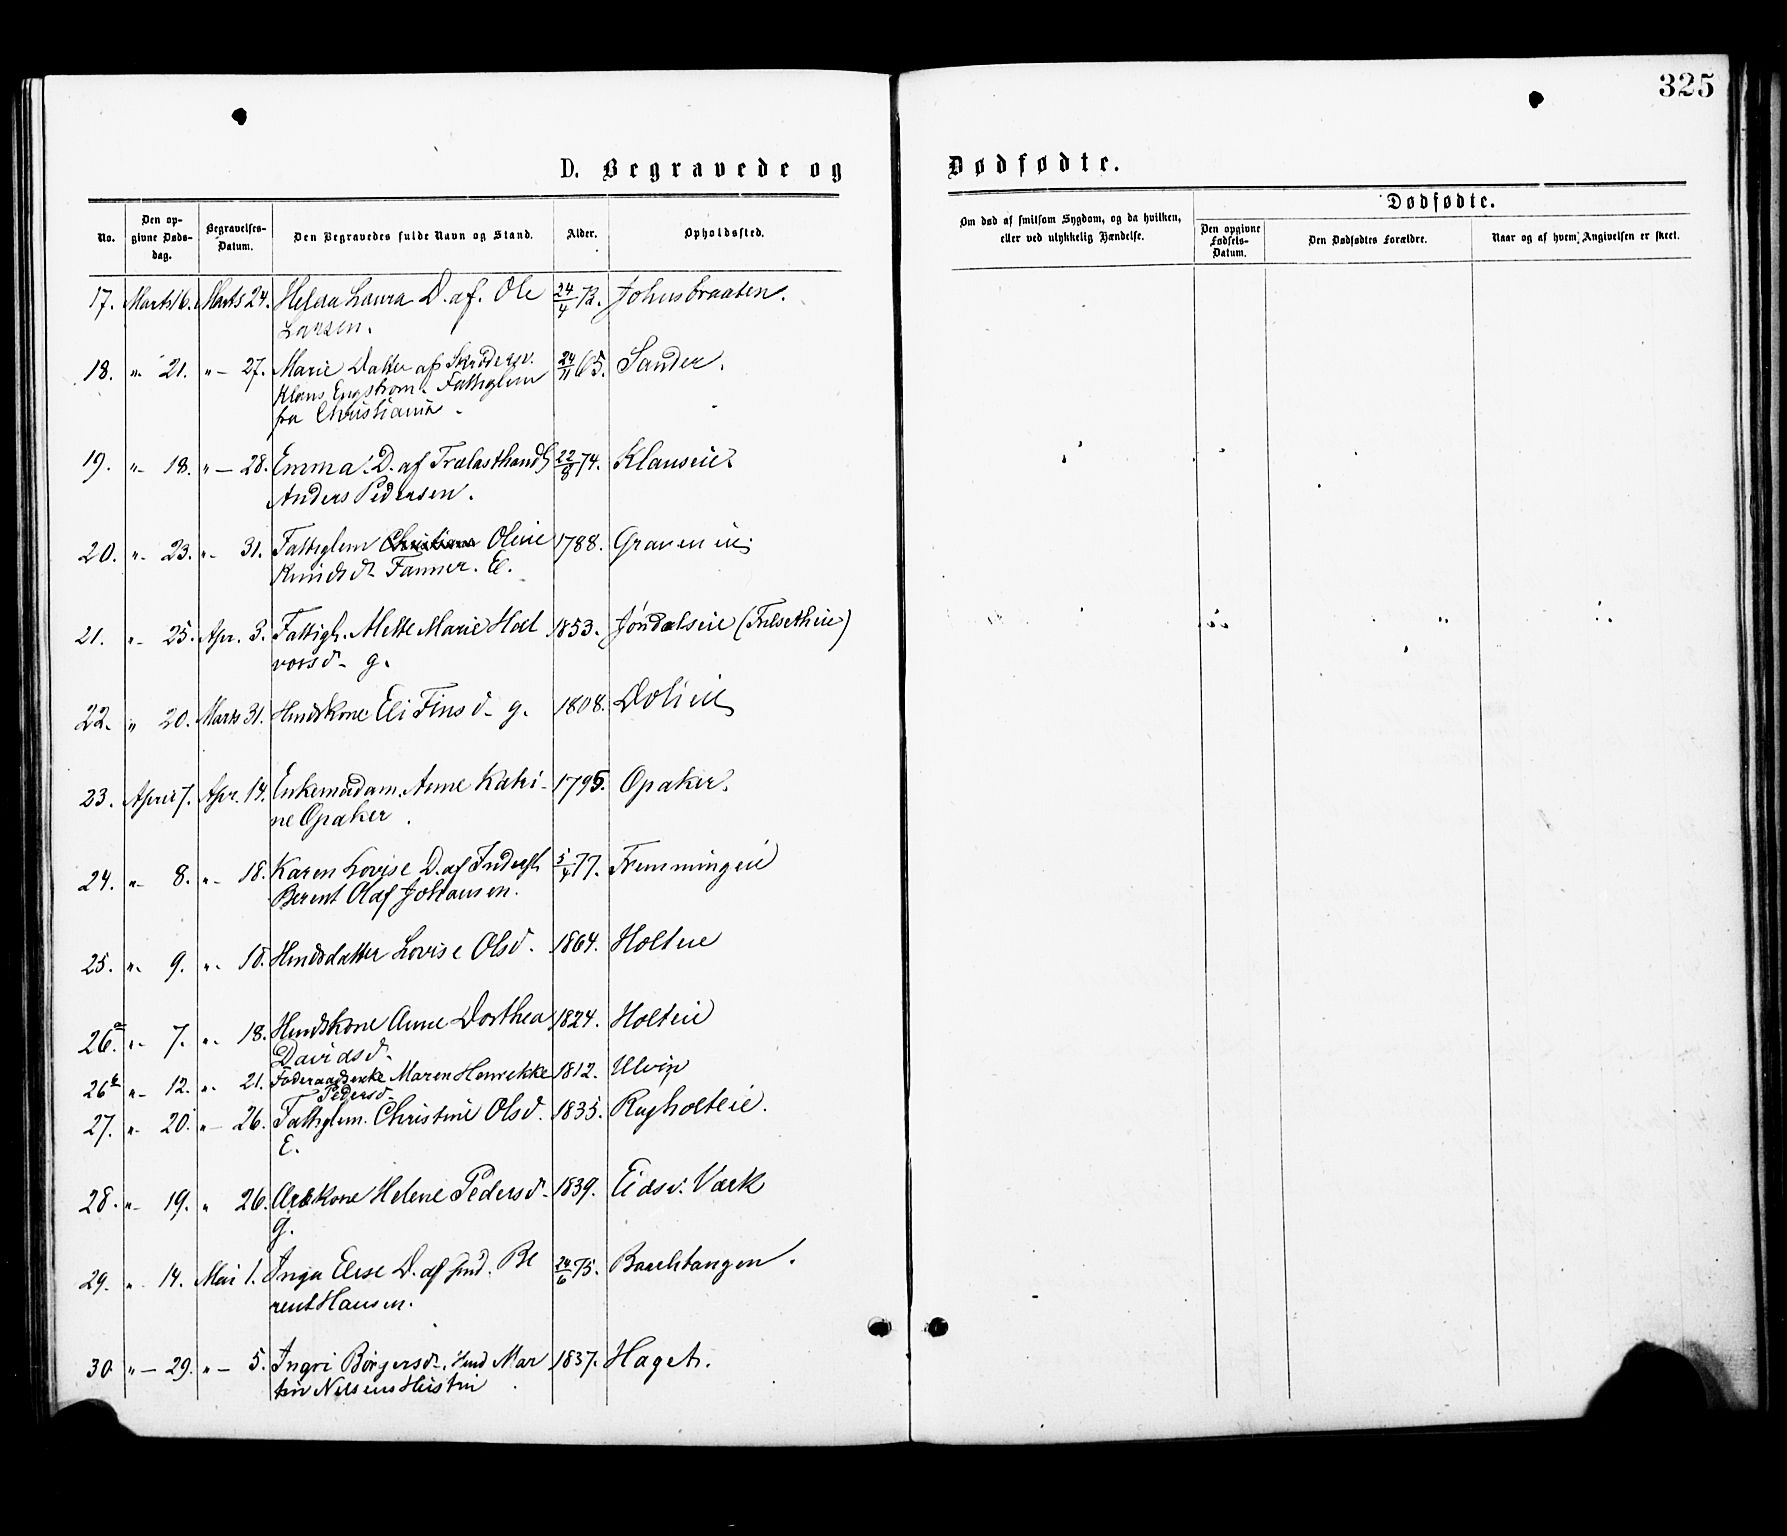 325
D. Begravede og Dødfødte.
No.
Den opgivne Dødsdag.
Begravelses-Datum.
Den Begravedes fulde Navn og Stand.
Alder.
Opholdssted.
Om død af smitsom Sygdom, og da hvilken, eller ved ulykkelig Hændelse.
Dødfødte.
Den opgivne Fødsels-Datum.
Den Dødfødtes Forældre.
Naar og af hvem Angivelsen er skeet.
17. Marts 16. Marts 24. Helga Laura D. af. Ole 24/4 72. Johnsbraaten.
Larsen.
18. "- 21. "- 27. Marie Datter af Skræddersv. 24/11 65. Sander.
Klaus Engstrøm. Fattiglem
fra Christiania.
19. "- 18. "- 28. Emma D. af Trælasthandl. 22/8 74. Klauseie
Anders Pedersen.
20. "- 23. "- 31. Fattiglem Oline 1788. Graveneie
Knudsd. Fanner. E.
21. "- 25. Apr. 3. Fattigl. Mette Marie Hal 1853. Jøndalseie (Fulsetheie)
vorsd. g.
22. " 20. Marts 31. Husmdkone Eli Finsd. g. 1808. Dolieie
23. April 7. Apr. 14. Enkemadam. Anne Katri- 1795. Opaker.
ne Opaker.
24. "- 8. "- 18. Karen Lovise D. af Inderst 5/4 77. Fremmingeie
Berent Olaf Johansen.
25. "- 9. "- 18. Husmdsdatter Lovise Olsd. 1864. Holteie
26a. "- 7. "- 18. Husmdskone Anne Dorthea 1824. Holteie
Davidsd.
26b "- 12. "- 21. Føderaadsenke Maren Henrekke 1812. Ulvin
Pedersd.
27. "- 20. "- 26. Fattiglem. Christine Olsd. 1835. Rugholteie.
E.
28. "- 19. " 26. Arbkone Helene Pedersd. 1839. Eidsv. Værk
g.
29. "- 14. Mai 1. Inga Elise D. af Ind. Be 24/6 75. Baashtangen.
rent Hansen.
30 "- 29. "- 5. Ingri Børgersd. Husmd Mar 1837. Haget.
tin Nilsens Hustru